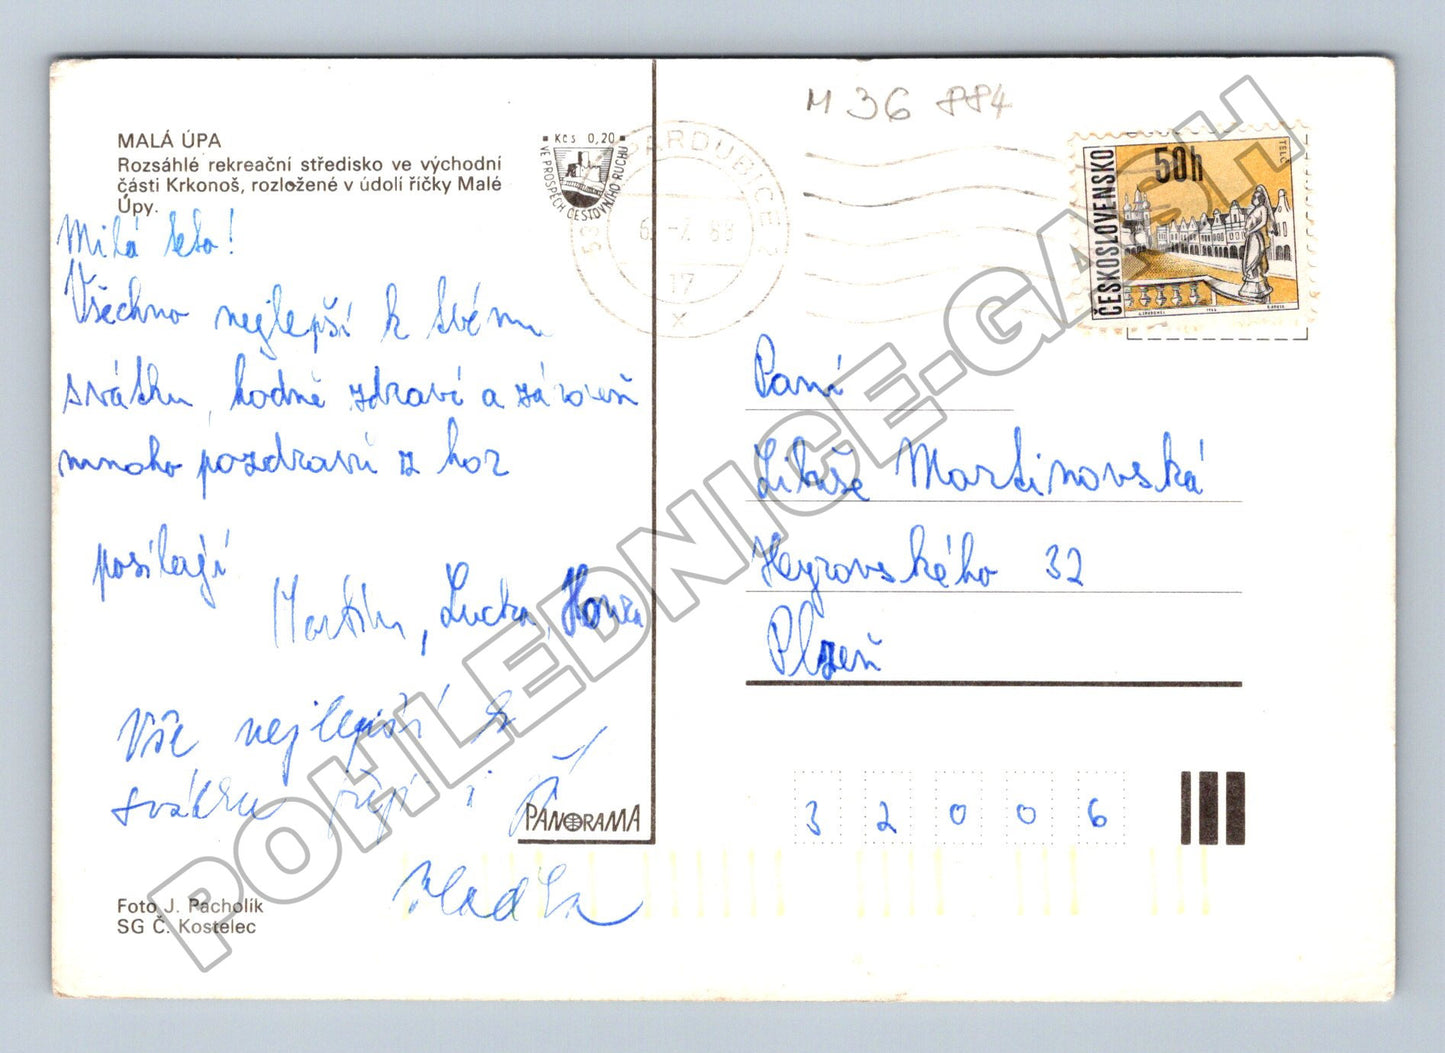 M 36 884
MALÁ ÚPA
Rozsáhlé rekreační středisko ve východní
části Krkonoš, rozložené v údolí říčky Malé
Úpy.
Kčs 0,20
VE PROSPĚCH CESTOVNÍHO RUCHU
PARDUBICE 2
17
x
ČESKOSLOVENSKO
50h
TELČ
Milá teto!
Všechno nejlepší k tvému
svátku, hodně zdraví a zároveň
mnoho pozdravů z hor
posílají
Martin, Lucka, Honza
Vše nejlepší k
svátku přejí i
Vladka
Paní
Libuše Martinovská
Heyrovského 32
Plzeň
32006
PANORAMA
Foto J. Pacholík
SG Č. Kostelec
POHLEDNICE-GASH